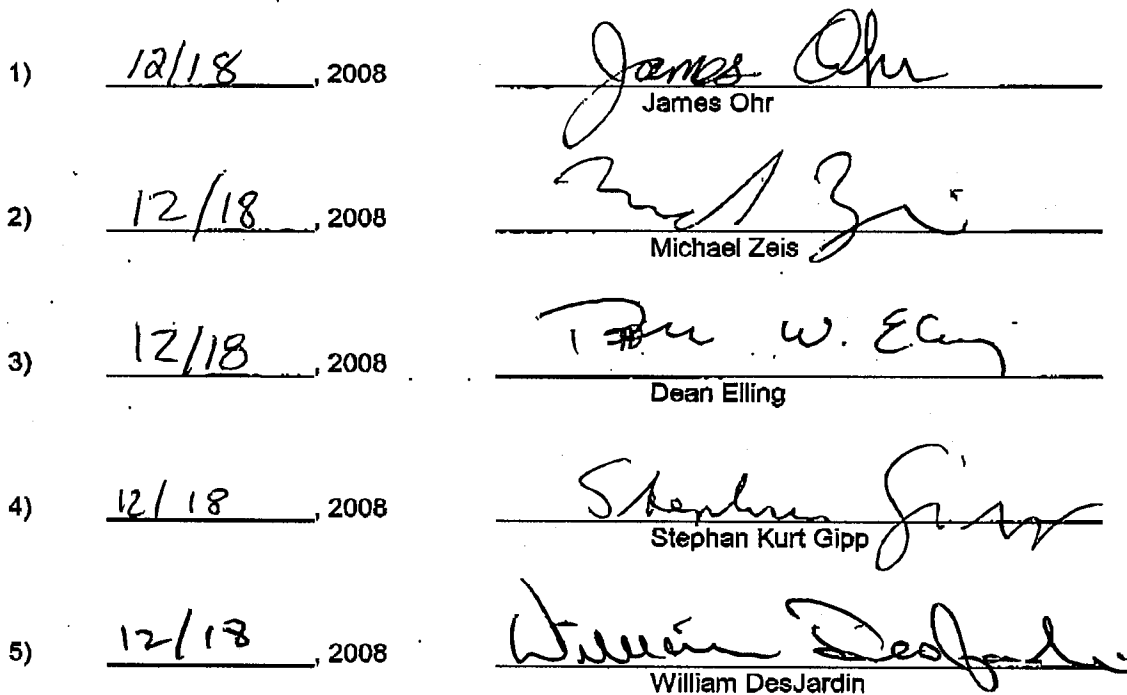 1) 12/18, 2008 James Ohr
James Ohr
2) 12/18, 2008
Michael Zeis
3) 12/18, 2008 W.
Dean Elling
4) 12/18, 2008 Stephan Gipp
Stephan Kurt Gipp
5) 12/18, 2008 William DesJardin
William DesJardin